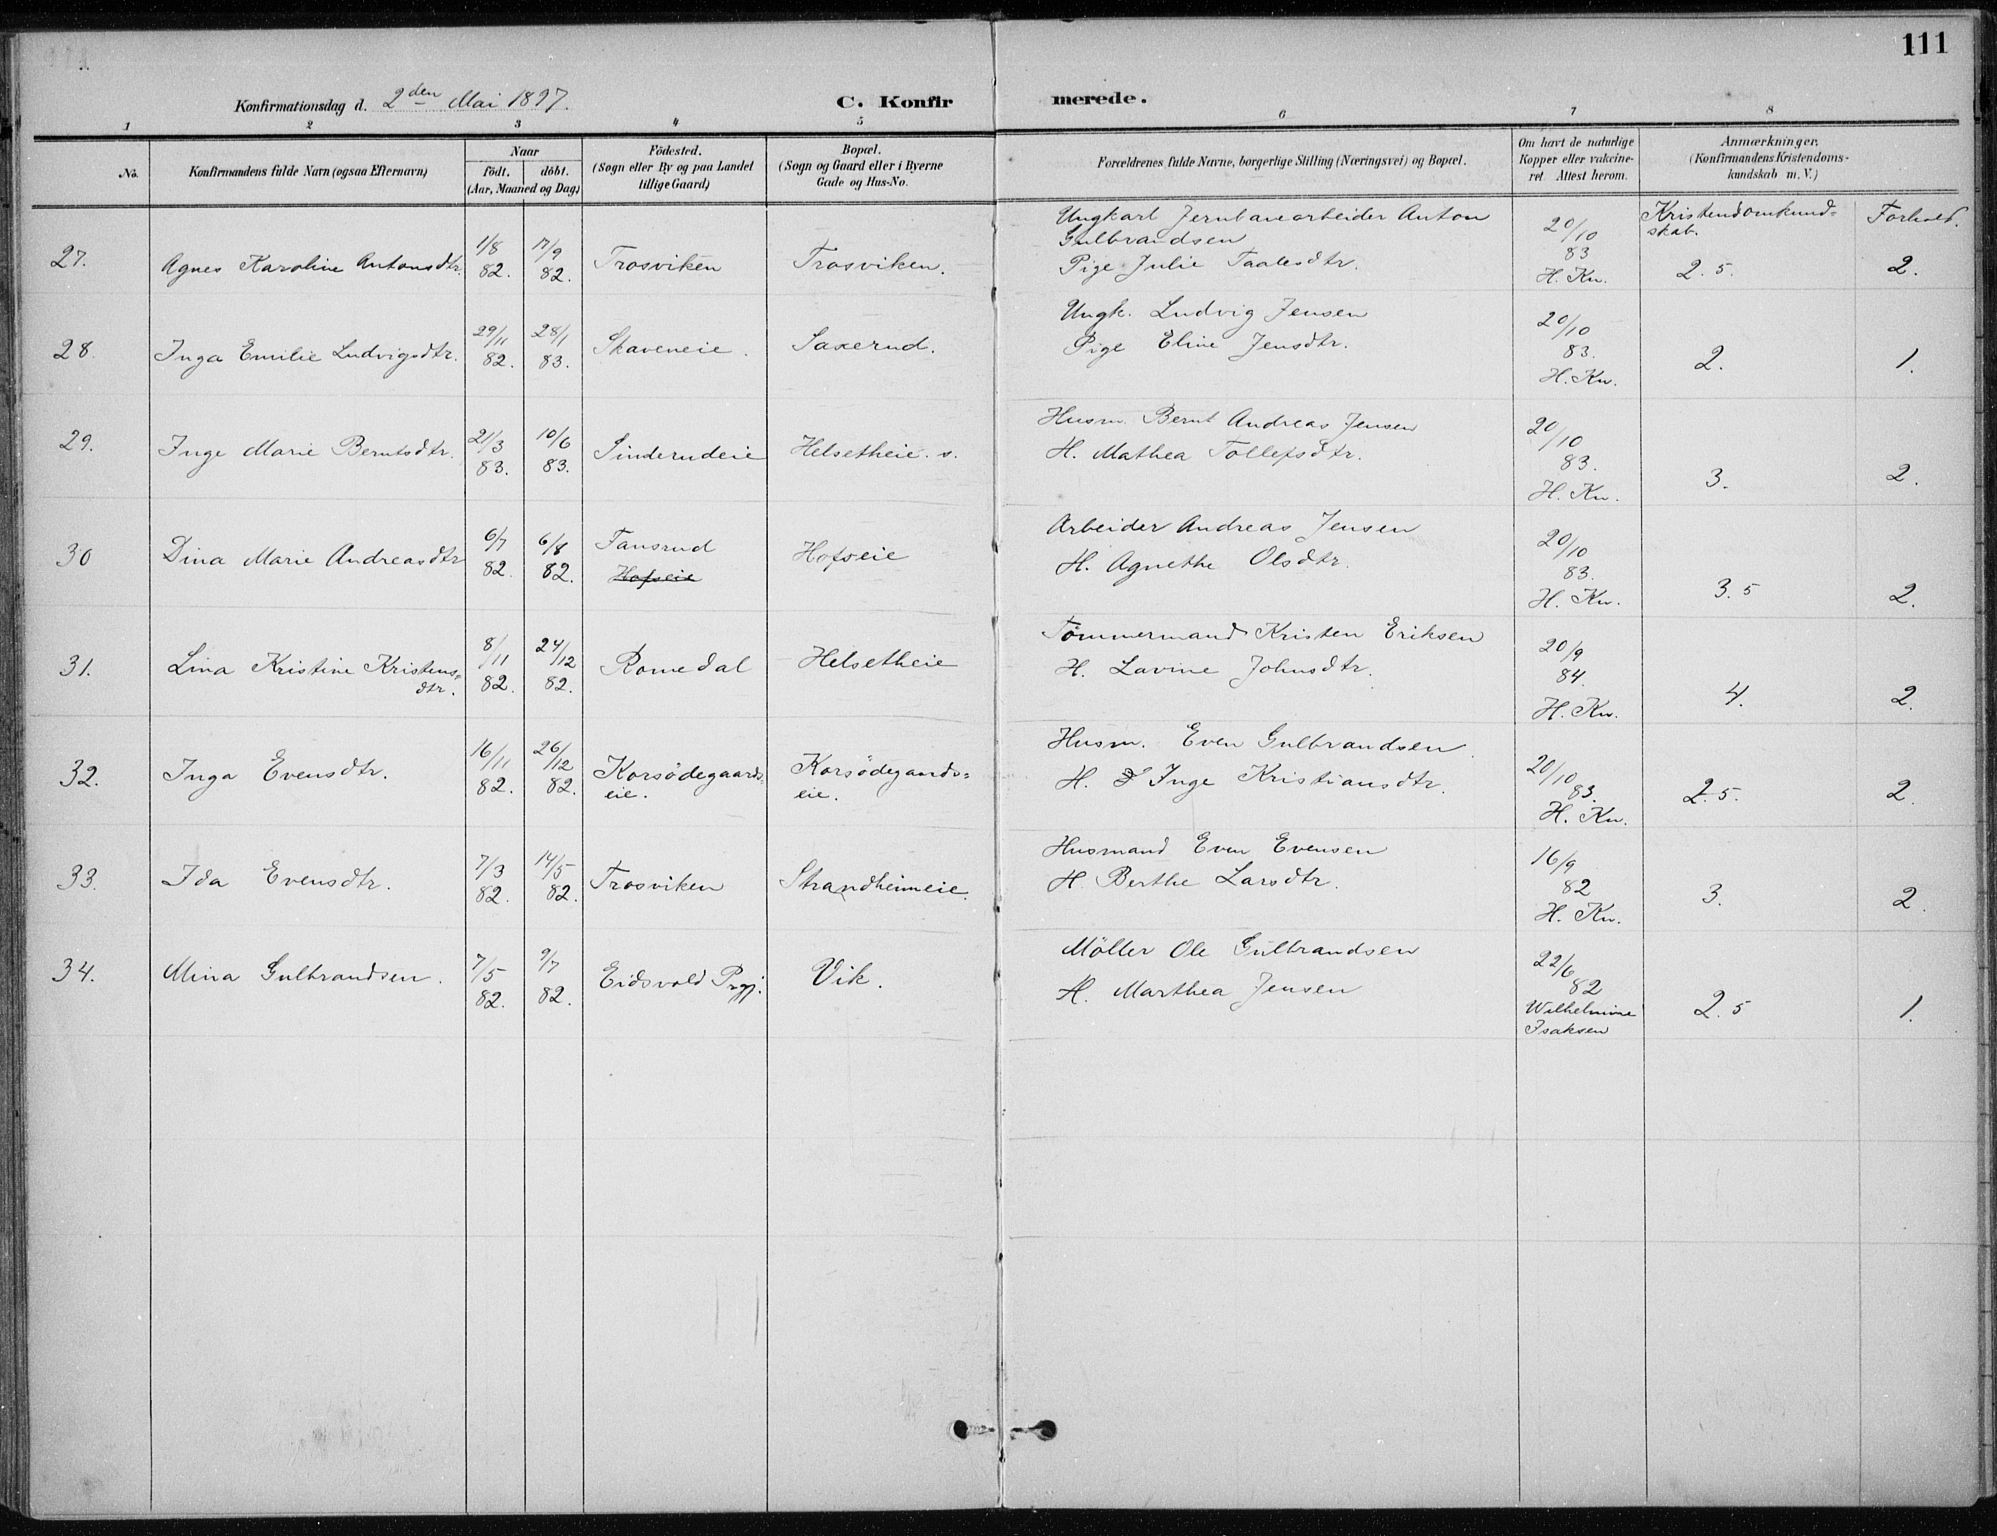 111
Konfirmationsdag d. 2den Mai 1897.
C. Konfirmerede.
1 2 3 4 5 6 7 8
No.
Konfirmandens fulde Navn (ogsaa Efternavn)
Naar
födt. döbt.
(Aar, Maaned og Dag)
Födested.
(Sogn eller By og paa Landet
tillige Gaard)
Bopæl.
(Sogn og Gaard eller i Byerne
Gade og Hus-No.
Forældrenes fulde Navne, borgerlige Stilling (Næringsvei) og Bopæl.
Om havt de naturlige
Kopper eller vakcine-
ret Attest herom.
Anmærkninger.
(Konfirmandens Kristendoms-
kundskab m. V.)
Kristendomkund=
skab.
Forhold.
27. Agnes Karoline Antonsdtr. 1/8 82. 17/9 82. Trosviken Trosviken.
Ungkarl Jernbanearbeider Anton
Gulbrandsen
Pige Julie Taalesdtr.
20/10
83
H. Kn.
2.5. 2.
28. Inga Emilie Ludvigsdtr. 29/11 82. 28/1 83. Skaveneie. Saxerud.
Ungk. Ludvig Jensen
Pige Eline Jensdtr.
20/10
83.
H. Kn.
2. 1.
29. Inge Marie Berntsdtr. 21/3 83. 10/6 83. Sinderudeie Helsetheie. s.
Husm. Bernt Andreas Jensen
H. Mathea Tollefsdtr.
20/10
83.
H. Kn.
3. 2.
30 Dina Marie Andreasdtr 6/7 82. 6/8 82. Tansrud Hofseie
Hofseie
Arbeider Andreas Jensen
H. Agnethe Olsdtr.
20/10
83.
H. Kn.
3.5 2.
31. Lina Kristine Kristens=
dtr. 8/11 82. 24/12 82. Romedal Helsetheie
Tømmermand Kristen Eriksen
H. Lavine Johnsdtr.
20/9
84.
H. Kn.
4. 2.
32. Inga Evensdtr. 16/11 82. 26/12 82. Korsödegaards
eie. Korsödegaards=
eie.
Husm. Even Gulbrandsen
H. Inge Kristiansdtr.
20/10
83.
H. Kn.
2.5. 2.
33. Ida Evensdtr. 7/3 82. 14/5 82. Trosviken Strandheimeie.
Husmand Even Evensen
H. Berthe Larsdtr.
16/9
82
H. Kn.
3. 2.
34. Mina Gulbrandsen. 7/5 82. 9/7 82. Eidsvold Prgj. Vik.
Möller Ole Gulbrandsen
H. Marthea Jensen
22/6
82
Wilhelmine
Isaksen
2.5 1.